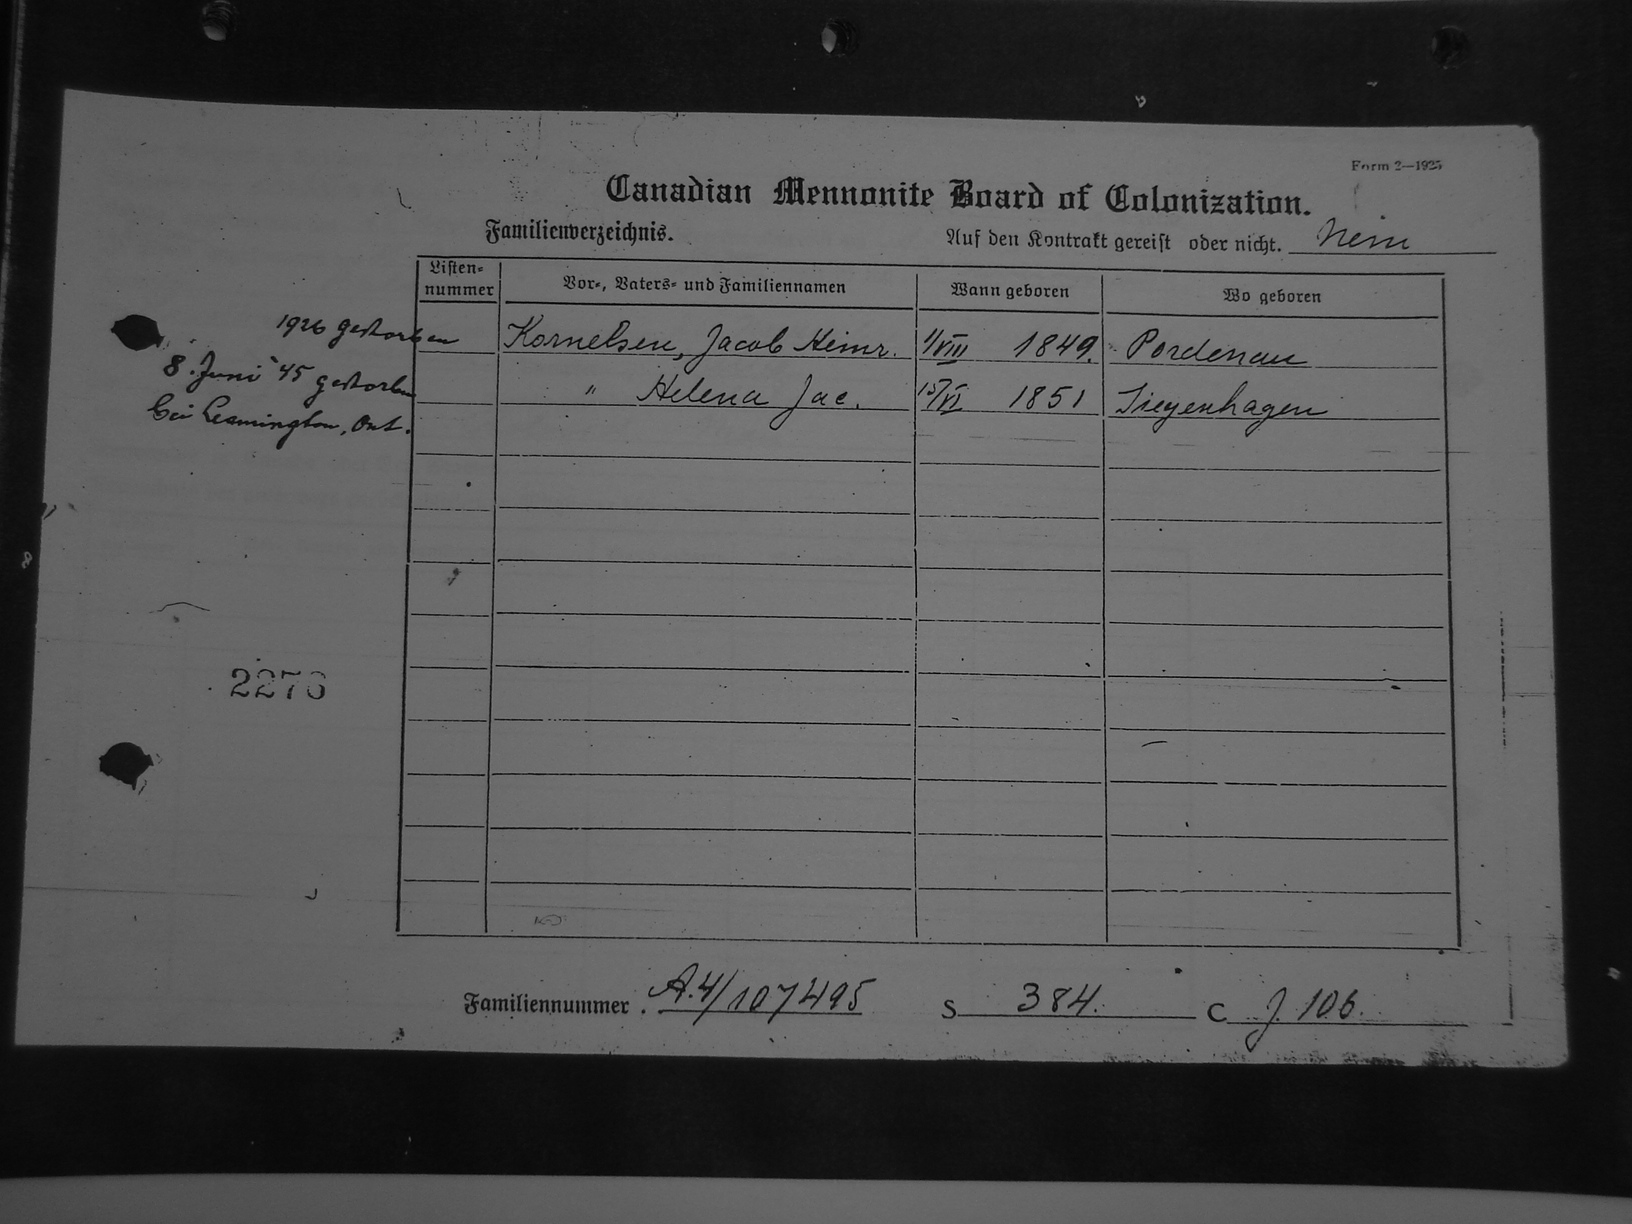 Form 2—1925
Canadian Mennonite Board of Colonization.
Familienverzeichnis.
Auf den Kontrakt gereist oder nicht. Nein
Listen-nummer
Vor-, Vaters- und Familiennamen
Wann geboren
Wo geboren
1926 gestorben
Kornelsen, Jacob Heinr. 1/VIII 1849. Pordenau
8. Juni 45 gestorben
" Helena Jac. 15/VI 1851 Tiegenhagen
bei Leamington, Ont.
2276
Familiennummer. A.4/107495 S 384. C J. 106.